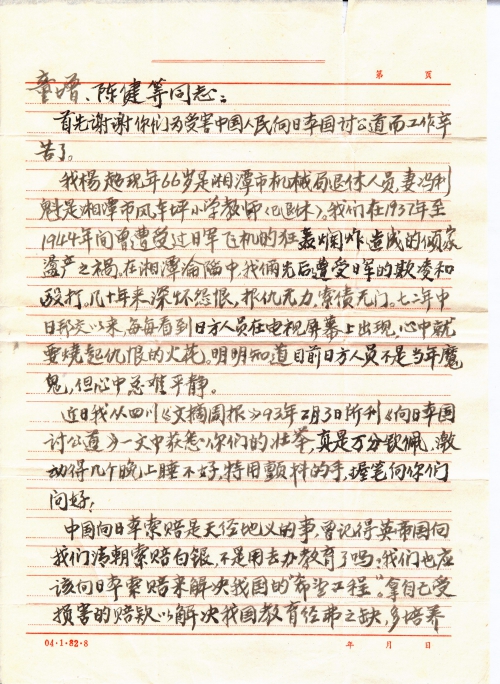 第 页
童增、陈健等同志：
首先谢谢你们为受害中国人民向日本国讨公道而工作辛
苦了。
我杨超现年66岁是湘潭市机械局退休人员妻冯利
魁是湘潭市风车坪小学教师(已退休)。我们在1937年至
1944年间曾遭受过日军飞机的狂轰烂炸造成的倾家
荡产之祸。在湘潭沦陷中，我俩先后遭受日军的欺凌和
殴打。几十年来深怀怨恨，报仇无力，索债无门。七二年中
日邦交以来，每每看到日方人员在电视屏幕上出现，心中就
要烧起仇恨的火花。明明知道目前日方人员不是当年魔
鬼，但心中总难平静。
近日我从四川《文摘周报》93年2月3日所刊《向日本国
讨公道》一文中获悉你们的壮举，真是万分钦佩，激
动得几个晚上睡不好，特用颤抖的手，握笔向你们
问好！
中国向日本索赔是天经地义的事，曾记得英帝国向
我们清朝索赔白银，不是用去办教育了吗？我们也应
该向日本索赔来解决我国的"希望工程"。拿自己受
损害的赔款以解决我国教育经费之缺，多培养
04·1·82·8 年 月 日